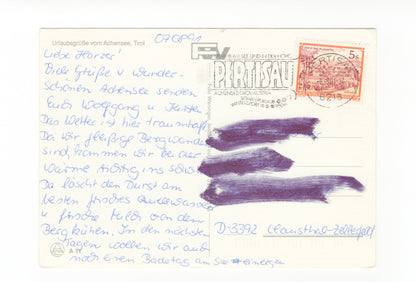 Urlaubsgrüße vom Achensee, Tirol
070891
Liebe Harzer!
Viele Grüße v. wunder-
schönen Achensee senden
Euch Wolfgang u.
Das Wetter ist hier traumhaft
Da wir fleißige Bergwanderer
sind, kommen wir bei der
Wärme richtig ins
Da löscht den Durst am
besten frisches Quellwasser
u. frische Milch von den
Bergkühen. In den nächsten
Tagen wollen wir auch
noch einen Badetag am See einlegen
PERTISAU
5 S
PERTISAU
6213
D-3392 Clausthal-Zellerfeld